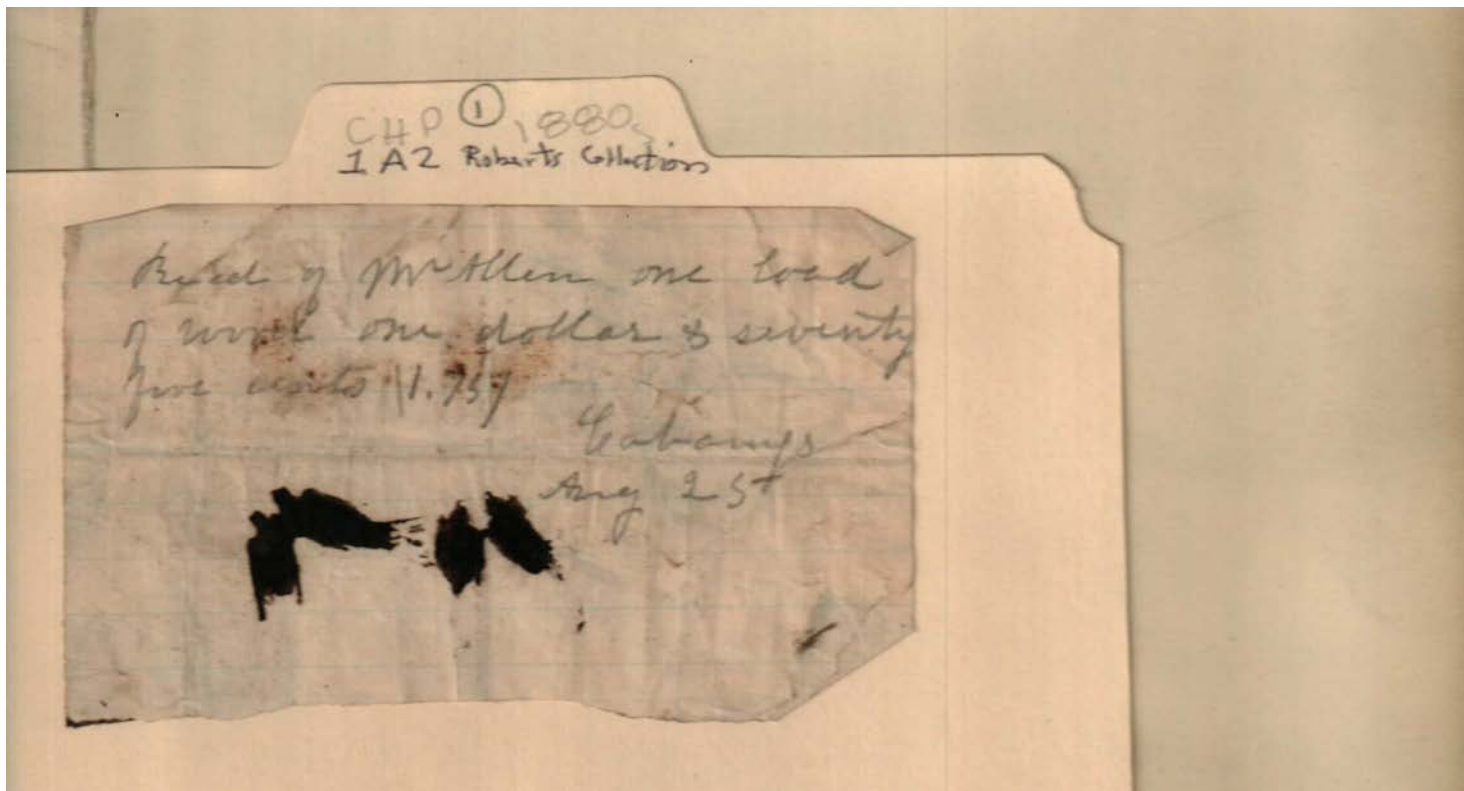 CHP ① 1880s
1 A2 Roberts Collection
Rec'd of Mr Allen one load
of wood one dollar & seventy
five cents 1.75
Aug 2 st